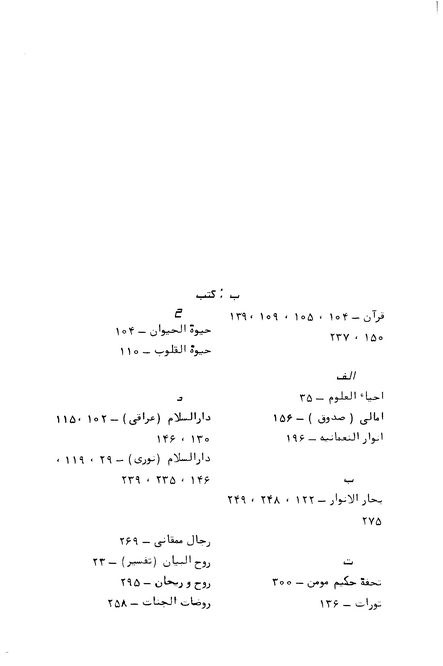 ب : کتب
قرآن – ۱۰۴ ، ۱۰۵ ، ۱۰۹ ، ۱۳۹
۱۵۰ ، ۲۳۷
الف
احیاء العلوم – ۳۵
امالی ( صدوق ) – ۱۵۶
انوار النعمانیه – ۱۹۶
ب
بحار الانوار – ۱۲۲ ، ۲۴۸ ، ۲۴۹
۲۷۵
ت
تحفة حکیم مومن – ۳۰۰
تورات – ۱۳۶
ح
حیوة الحیوان – ۱۰۴
حیوة القلوب – ۱۱۰
د
دارالسلام (عراقی) – ۱۰۲ ، ۱۱۵
۱۳۰ ، ۱۴۶
دارالسلام (نوری) – ۲۹ ، ۱۱۹ ،
۱۴۶ ، ۲۳۵ ، ۲۳۹
رجال ممقانی – ۲۶۹
روح البیان (تفسیر) – ۲۳
روح و ریحان – ۲۹۵
روضات الجنات – ۲۵۸